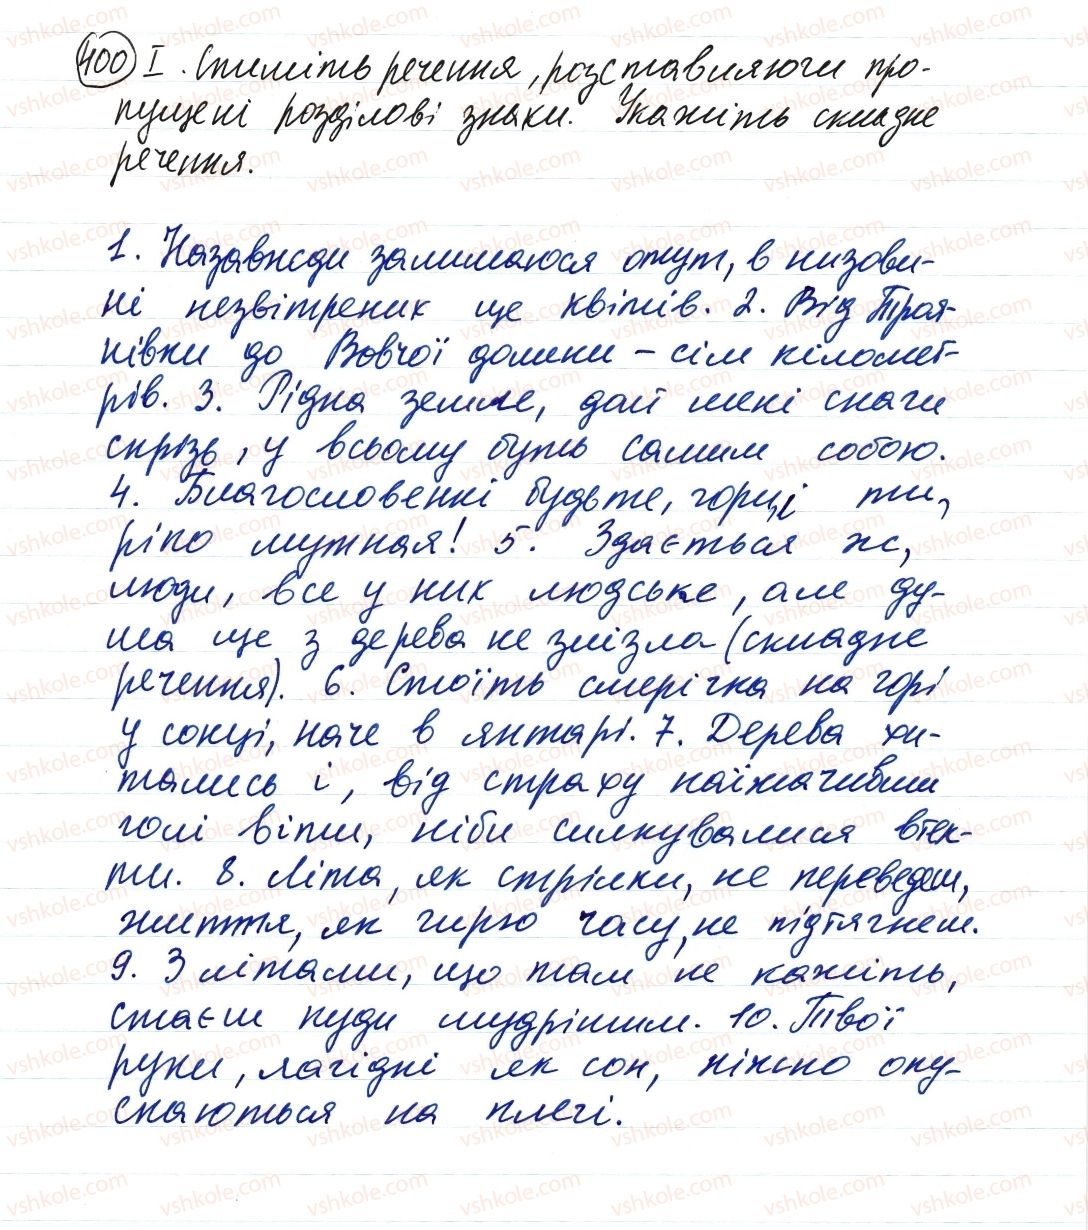 400 I. Спишіть речення, розставляючи про-
пущені розділові знаки. Укажіть складне
речення.
1. Назавжди залишаюся отут, в низови-
ні незвітреник ще квітів. 2. Від Троя-
нівки до Вовчої долини – сім кіломет-
рів. 3. Рідна земле, дай мені снаги
скрізь, у всьому буть самим собою.
4. Благословенні будьте, горці ти,
ріко мутная! 5. Здається ж,
люди, все у них людське, але ду-
ша ще з дерева не злізла (складне
речення). 6. Стоїть смерічка на горі
у сонці, наче в янтарі. 7. Дерева хи-
тались і, від страху наїжачивши
голі віти, ніби силкувалися втек-
ти. 8. Літа, як стрілки, не переведеш,
життя, як гирю часу, не підтягнеш.
9. З літами, що там не кажіть,
стаєш куди мудрішим. 10. Твої
руки, лагідні як сон, ніжно опу-
скаються на плечі.